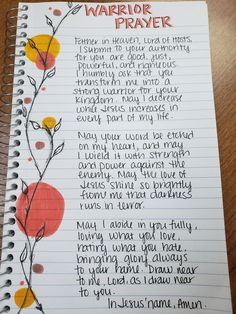 WARRIOR
PRAYER
Father in Heaven, Lord of Hosts,
I submit to your authority
for you are good, just,
powerful, and righteous.
I humbly ask that you
transform me into a
strong warrior for your
kingdom. May I decrease
while Jesus increases in
every part of my life.
May your word be etched
on my heart, and may
I wield it with strength
and power against the
enemy. May the love of
Jesus shine so brightly
from me that darkness
runs in terror.
May I abide in you fully,
loving what you love,
hating what you hate,
bringing glory always
to your name. Draw near
to me, Lord, as I draw near
to you.
In Jesus' name, Amen.